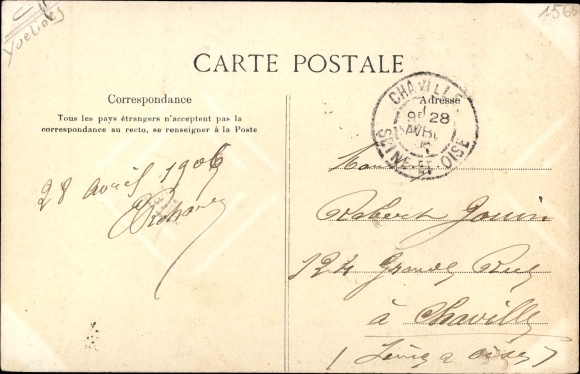 Yvelines
CARTE POSTALE
Correspondance
Tous les pays étrangers n'acceptent pas la
correspondance au recto, se renseigner à la Poste
28 avril 1906
Adresse
CHAVILLE
28
AVRIL
SEINE ET OISE
Robert Jouin
124 Grande Rue
à Chaville
(Seine & Oise)